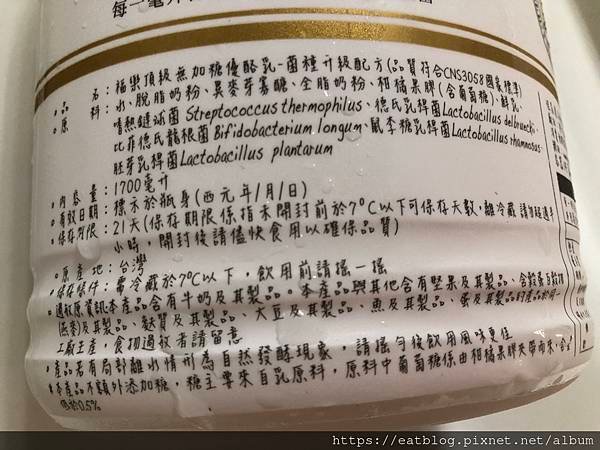 每一毫升
品 名：福樂頂級無加糖優酪乳-菌種升級配方(品質符合CNS3058國家標準)
原 料：水、脫脂奶粉、異麥芽寡醣、全脂奶粉、柑橘果膠(含葡萄糖)、鮮乳、
嗜熱鏈球菌Streptococcus thermophilus、德氏乳桿菌Lactobacillus delbrueckii、
比菲德氏龍根菌Bifidobacterium longum、鼠李糖乳桿菌Lactobacillus rhamnosus、
胚芽乳桿菌Lactobacillus plantarum
內容量：1700毫升
有效日期：標示於瓶身(西元年/月/日)
保存期限：21天(保存期限係指未開封前於7°C以下可保存天數，離冷藏請勿超過半
小時，開封後請儘快食用以確保品質)
原產地：台灣
保存條件：需冷藏於7°C以下，飲用前請搖一搖
過敏原資訊：本產品含有牛奶及其製品。本產品與其他含有堅果及其製品、含麩質之穀物
(燕麥)及其製品、麩質及其製品、大豆及其製品、魚及其製品、蛋及其製品的產品於同一
工廠生產，食物過敏者請留意
產品若有局部離水情形為自然發酵現象，請搖勻後飲用風味更佳
本產品不額外添加糖，糖主要來自乳原料，原料中葡萄糖係由柑橘果膠天然帶來，含量
低於0.5%
https://eatblog.pixnet.net/album